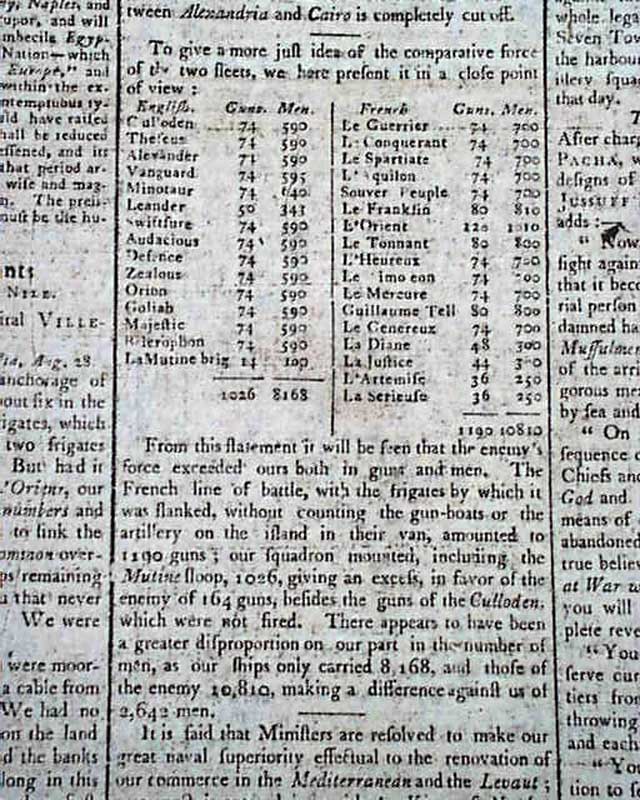 ry, Naples, and
upor, and will
imbecile Egyp-
Nation—which
Europe," and
within the ex-
ntemptuous ty-
uld have raised
hall be reduced
essened, and its
that period ar-
wise and mag-
n. The
must be the hu-
nts
NILE.
iral VILLE-
Aug. 28
anchorage of
out six in the
igates, which
two frigates
But had it
L'Orient, our
numbers and
to sink the
common over-
ps remaining
u that never
We were
were moor-
a cable from
We had no
on the land
d the banks
long in this
tween Alexandria and Cairo is completely cut off.
To give a more just idea of the comparative force
of the two fleets, we here present it in a close point
of view :
English. Guns. Men.
Culloden 74 590
Theseus 74 590
Alexander 74 590
Vanguard 74 595
Minotaur 74 640
Leander 50 343
Swiftsure 74 590
Audacious 74 590
Defence 74 590
Zealous 74 590
Orion 74 590
Goliah 74 590
Majestic 74 590
Bellerophon 74 590
La Mutine brig 14
1026 8168
French Guns. Men.
Le Guerrier 74 700
Le Conquerant 74 700
Le Spartiate 74 700
L'Aquilon 74 700
Souver Peuple 74 700
Le Franklin 80 810
L'Orient 120 1010
Le Tonnant 80 800
L'Heureux 74 700
Le Timoleon 74 700
Le Mercure 74 700
Guillaume Tell 80 800
Le Genereux 74 700
La Diane 48 300
La Justice 44 300
L'Artemise 36 250
La Serieuse 36 250
1190 10810
From this statement it will be seen that the enemy's
force exceeded ours both in guns and men. The
French line of battle, with the frigates by which it
was flanked, without counting the gun-boats or the
artillery on the island in their van, amounted to
1190 guns ; our squadron mounted, including the
Mutine sloop, 1026, giving an excess, in favor of the
enemy of 164 guns, besides the guns of the Culloden,
which were not fired. There appears to have been
a greater disproportion on our part in the number of
men, as our ships only carried 8,168, and those of
the enemy 10,810, making a difference against us of
2,642 men.
It is said that Ministers are resolved to make our
great naval superiority effectual to the renovation of
our commerce in the Mediterranean and the Levant ;
whole lega
Seven Tow
the harbou
illery squa
that day.
After charg
PACHA, w
designs of
JUSSUFF
adds :—
" Now
fight again
that it beco
rial person
damned ha
Mussulmen
of the arri
gorous mea
by sea and
" On
sequence o
Chiefs and
God and
means of
abandoned
true believ
at War w
you will
plete reve
" You
serve cur
tiers from
throwing
and each
" You
tion to